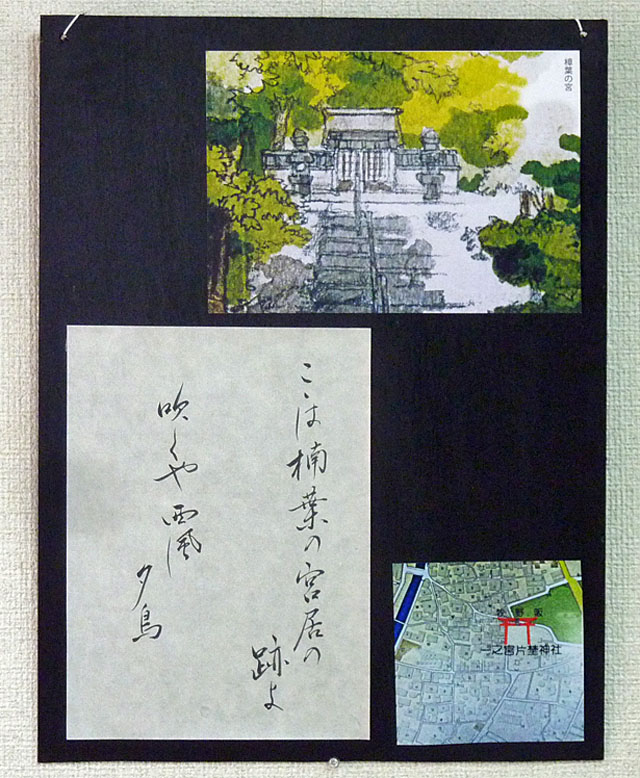 樟葉の宮
こゝは楠葉の宮居の
跡よ
吹くや西風
夕鳥
牧野阪
一之宮片埜神社